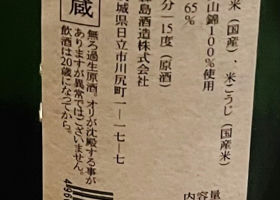 米(国産)、米こうじ(国産米)
山錦100%使用
65%
分15度(原酒)
島酒造株式会社
城県日立市川尻町一-一七-七
蔵
無ろ過生原酒、オリが沈殿する事が
ありますが異常ではございません。
飲酒は20歳になってから。
内容量